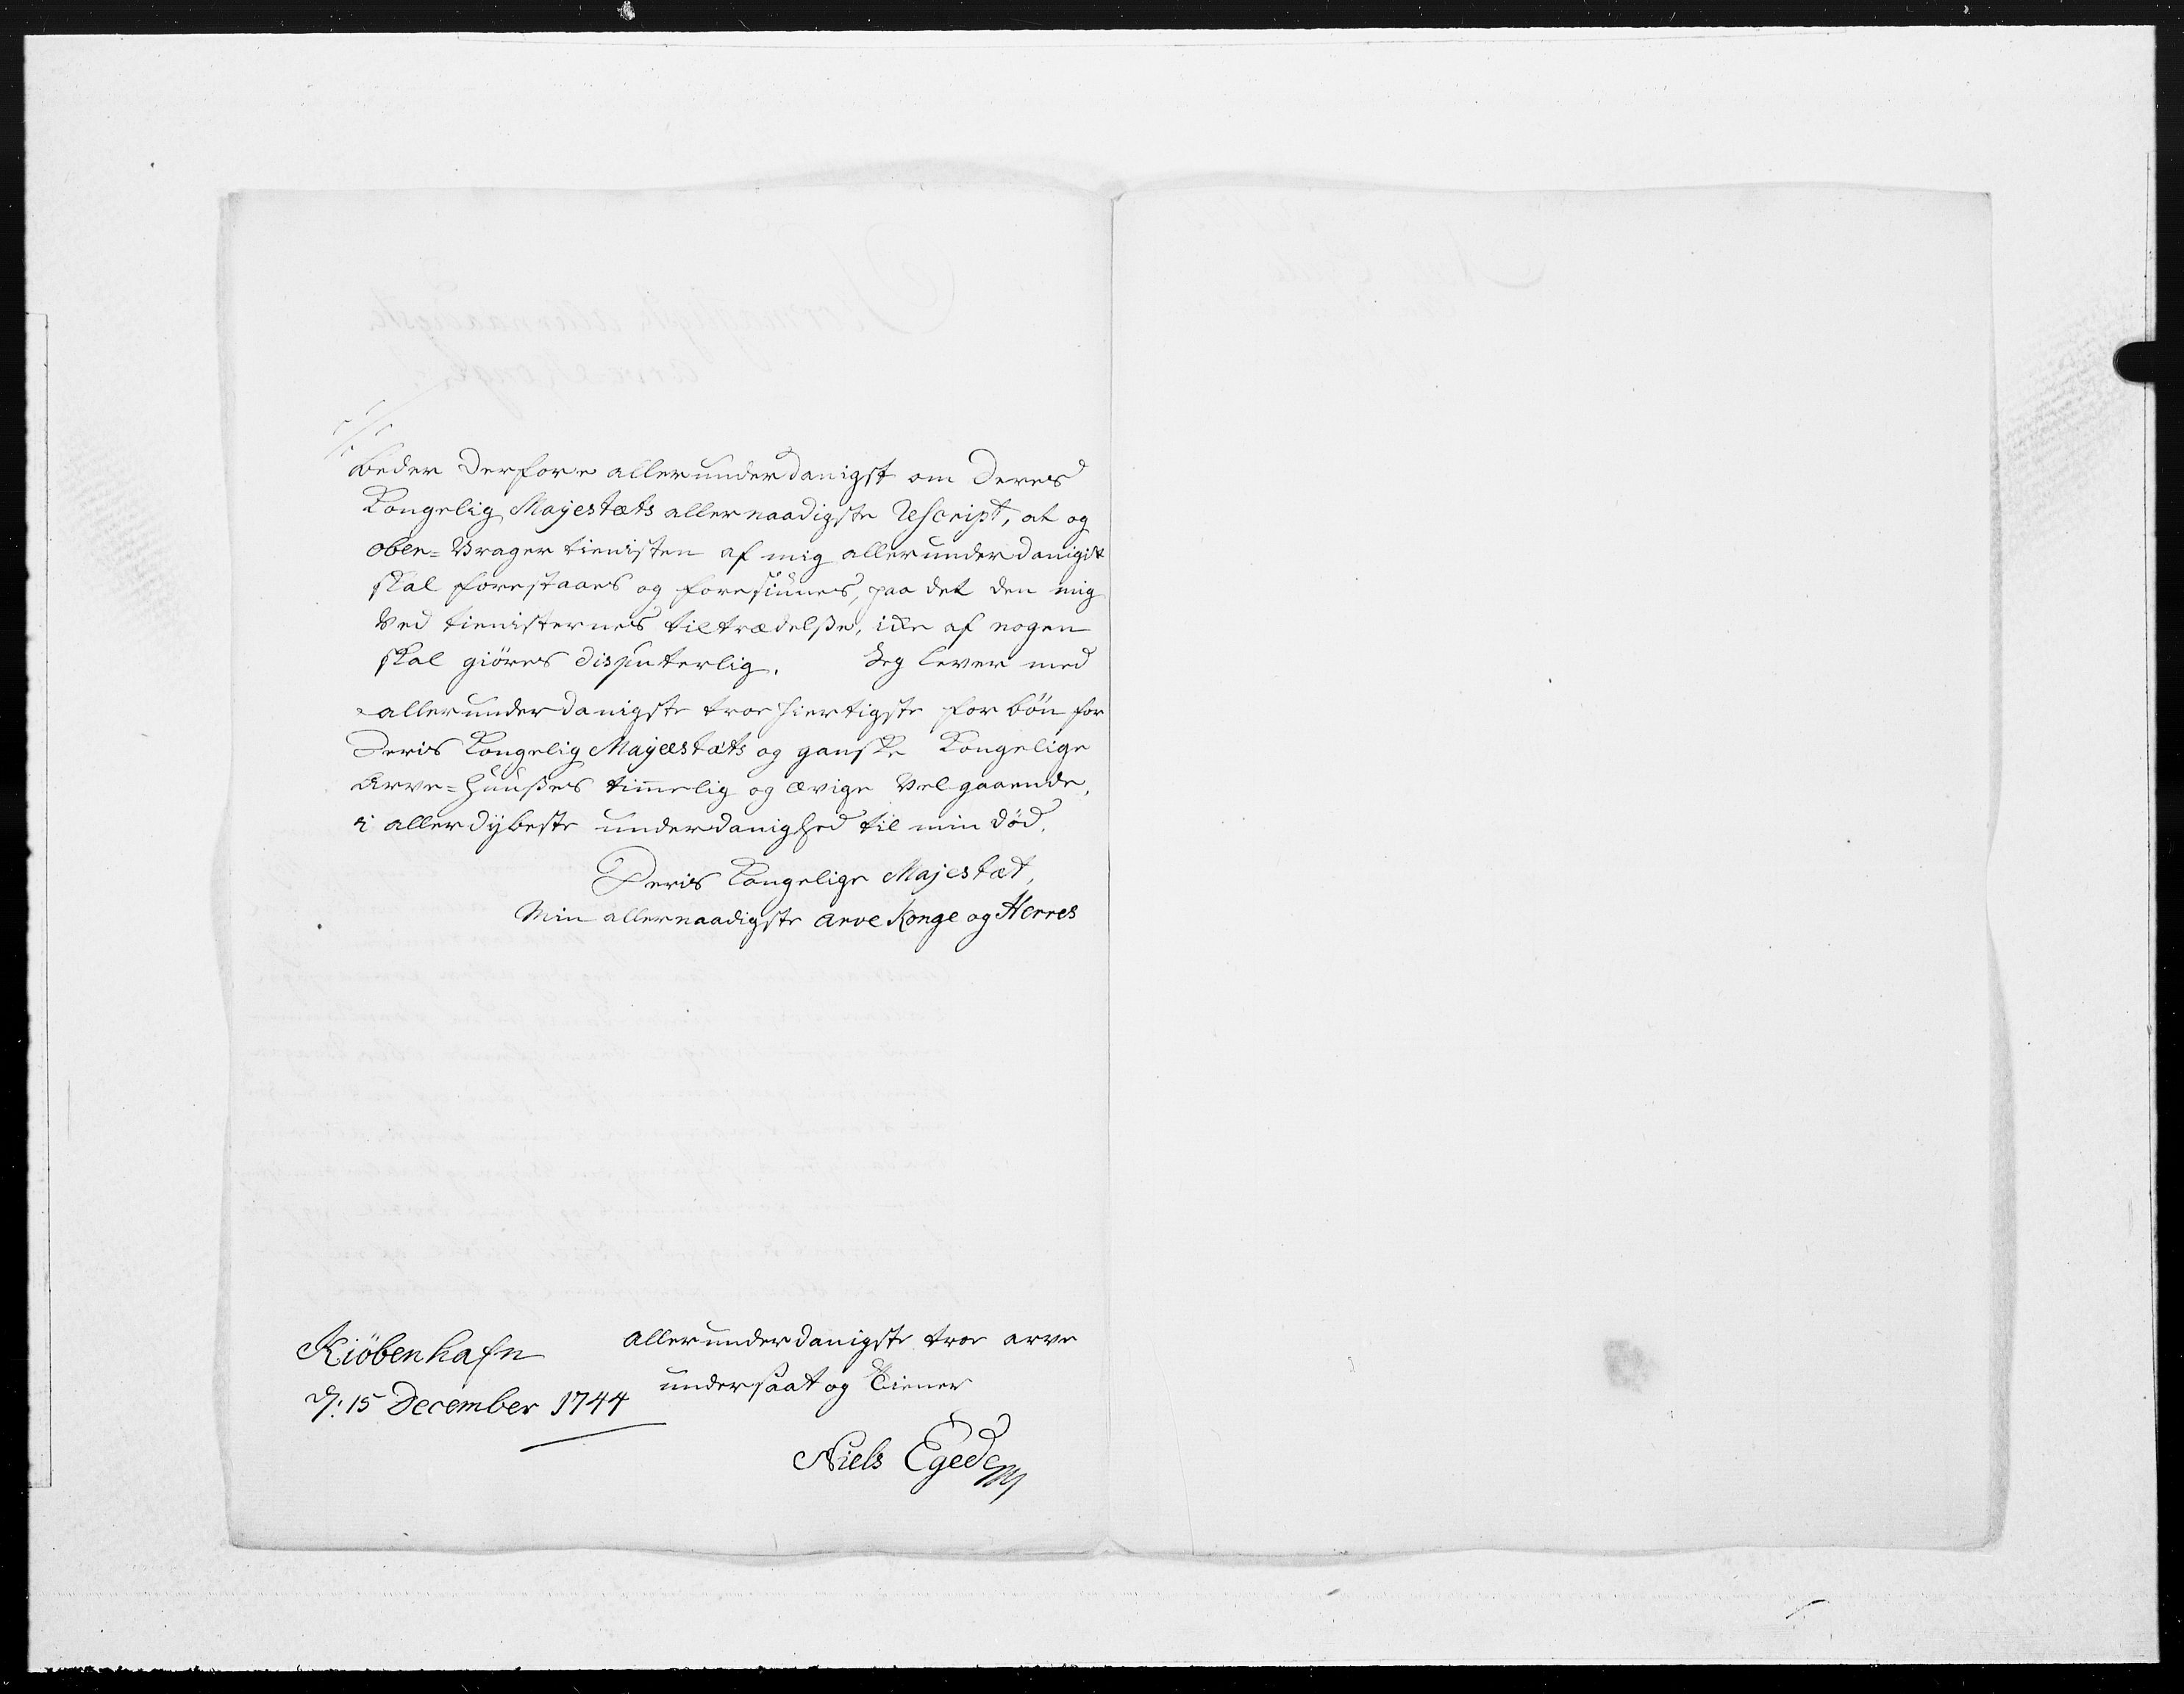 beder derfore allerunderdanigst om Deres
Kongelig Mayestæts allernaadigste Rescript, at og
Over-Vrager tienisten af mig allerunderdanigst
skal forestaaes og foresiunes, paa det den mig
ved tienisternes tiltrædelse, icke af nogen
skal giöres disputerlig. Jeg lever med
allerunderdanigste troe hiertigste forbön for
Deris Kongelig Mayestæts og ganske Kongelige
Arve-Huuses timelig og ævige Velgaaende,
i allerdybeste underdanighed til min död.
Deris Kongelige Majestæt,
Min allernaadigste Arve Konge og Herres
allerunderdanigste troe arve
undersaat og Tiener
Niels Egede
Kiöbenhafn
d: 15 December 1744